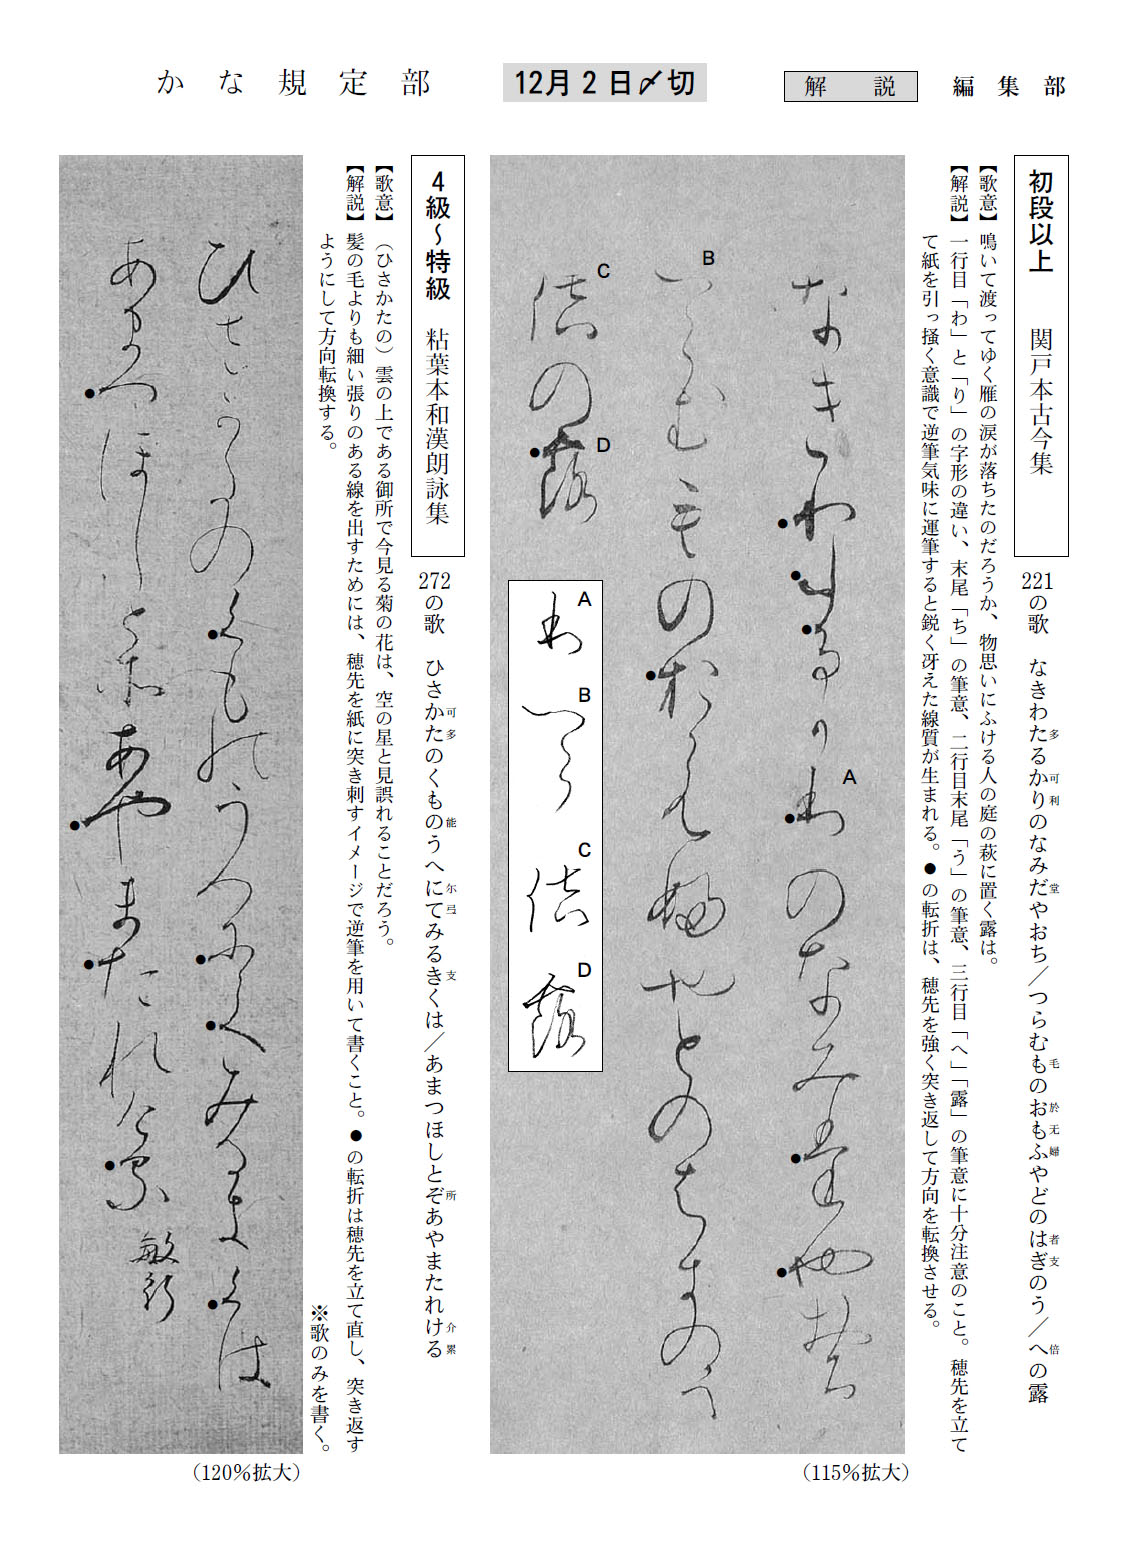 かな規定部
12月2日〆切
解説
編集部
初段以上　関戸本古今集
221の歌　なきわたるかりのなみだやおち／つらむものおもふやどのはぎのう／への露
多　可利　堂　毛　於无婦　者支　倍
【歌意】鳴いて渡ってゆく雁の涙が落ちたのだろうか、物思いにふける人の庭の萩に置く露は。
【解説】一行目「わ」と「り」の字形の違い、末尾「ち」の筆意、二行目末尾「う」の筆意、三行目「へ」「露」の筆意に十分注意のこと。穂先を立て
て紙を引っ掻く意識で逆筆気味に運筆すると鋭く冴えた線質が生まれる。●の転折は、穂先を強く突き返して方向を転換させる。
なきわたるかりのなみ堂やおち
A
つらむ毛のおも婦やとのはきのう
B
倍の露
C
D
A
B
C
D
（115％拡大）
4級〜特級　粘葉本和漢朗詠集
272の歌　ひさかたのくものうへにてみるきくは／あまつほしとぞあやまたれける
可多　能　尓弖　支　所　介累
【歌意】（ひさかたの）雲の上である御所で今見る菊の花は、空の星と見誤れることだろう。
【解説】髪の毛よりも細い張りのある線を出すためには、穂先を紙に突き刺すイメージで逆筆を用いて書くこと。●の転折は穂先を立て直し、突き返す
ようにして方向転換する。
※歌のみを書く。
ひさかたのくものうへにてみるきくは
あまつほしと所あやまたれ介累
敏行
（120％拡大）